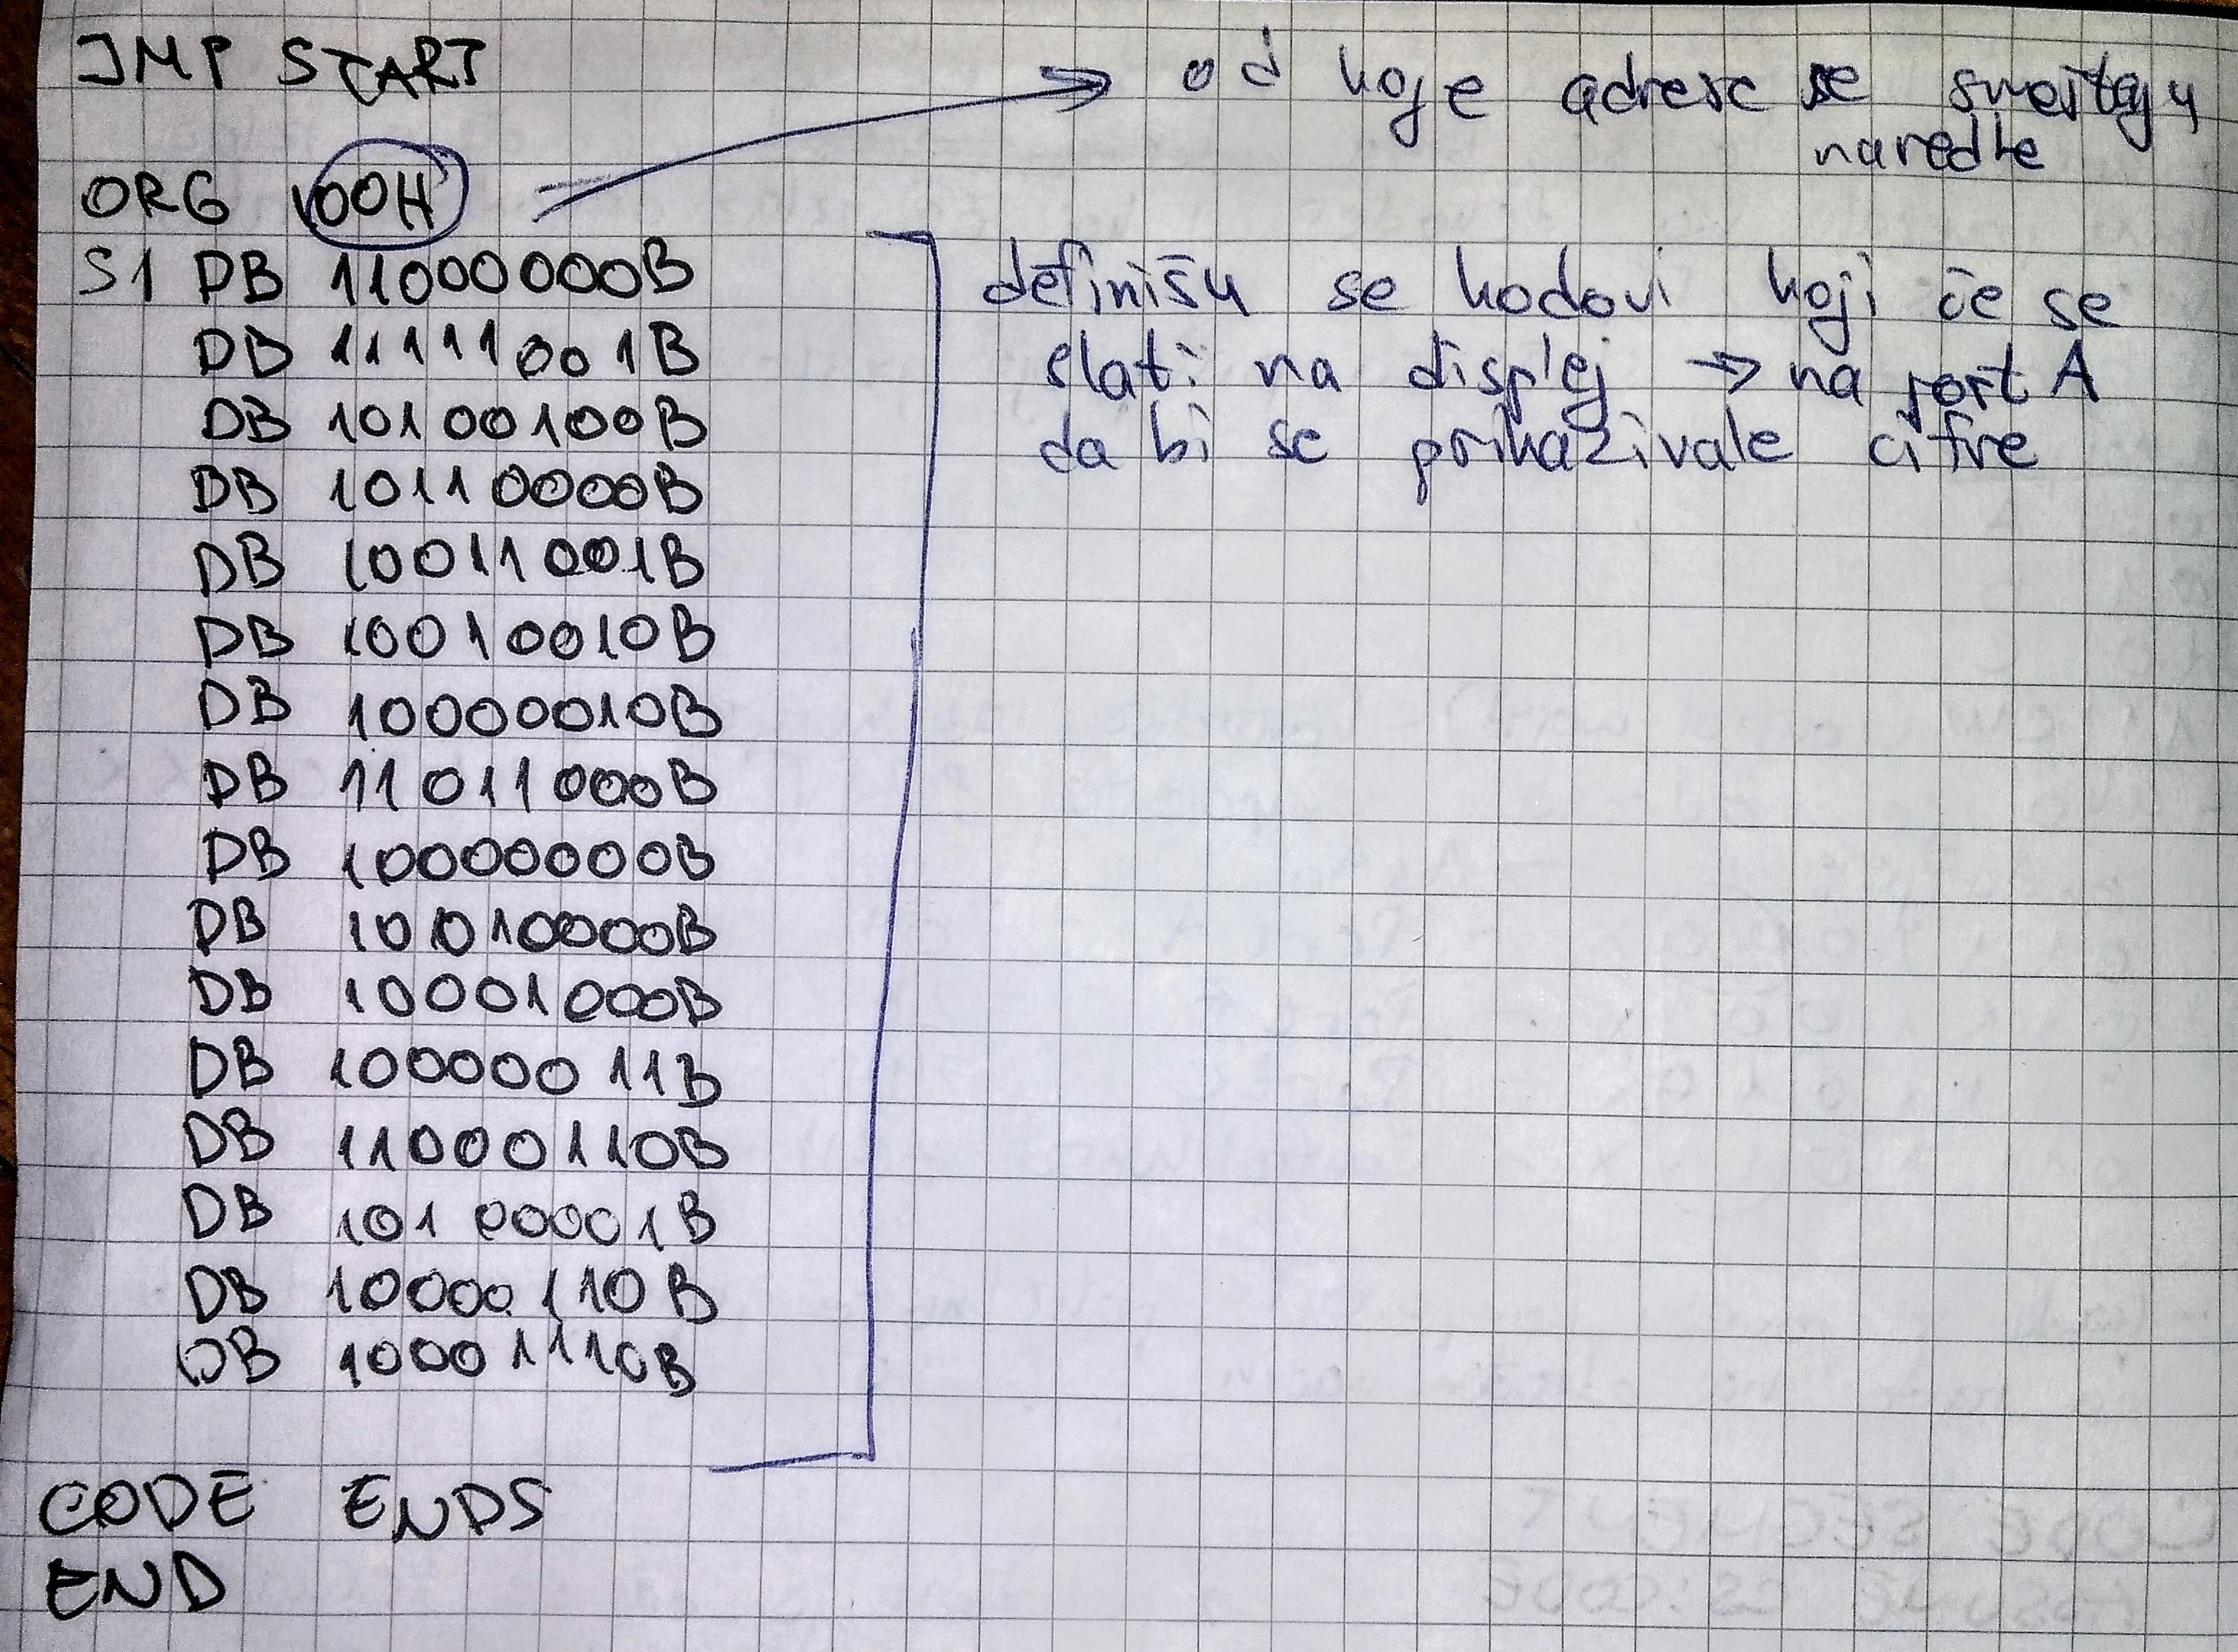 JMP START
od koje adrese se smeštaju
naredbe
ORG 100H
S1 DB 11000000B
DB 11111001B
DB 10100100B
DB 10110000B
DB 10011001B
DB 10010010B
DB 10000010B
DB 11011000B
DB 10000000B
DB 10010000B
DB 10001000B
DB 10000011B
DB 11000110B
DB 10100001B
DB 10000110B
DB 10001110B
definišu se kodovi koji će se
slati na displej → na port A
da bi se prikazivale cifre
CODE ENDS
END
CODE SEGMENT
ASSUME CS:CODE